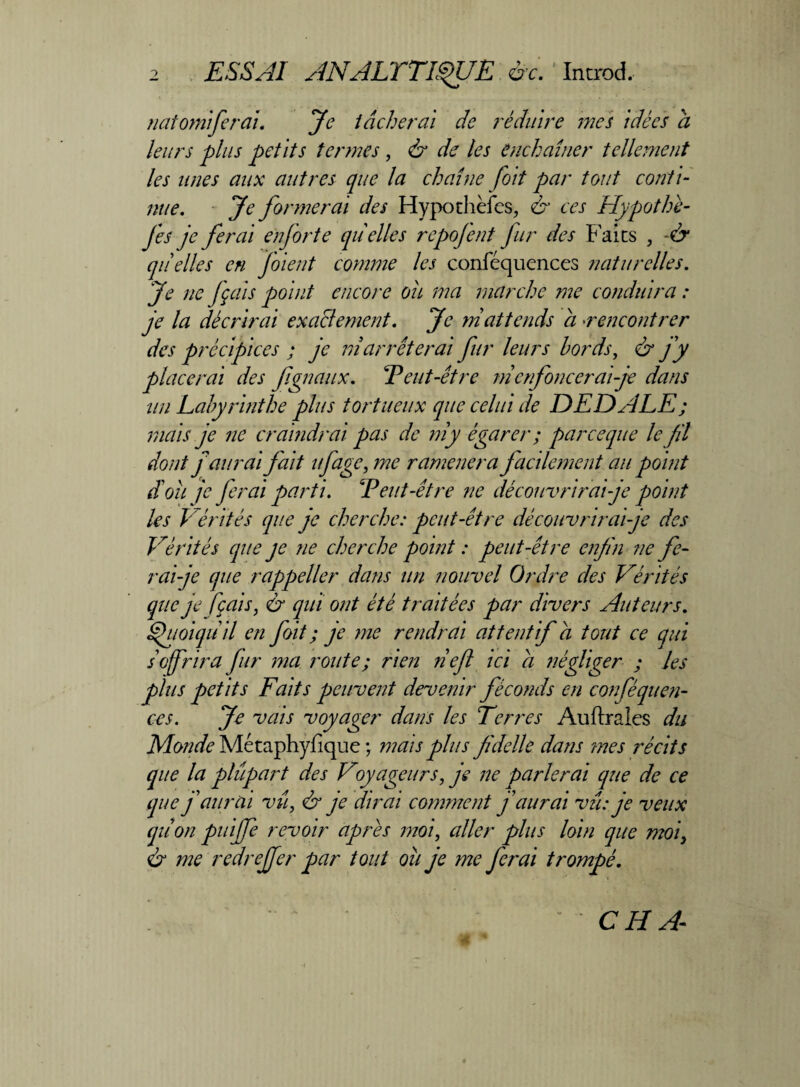 2 ESSAI ANALYTIQUE &c. Introd.
natomiſerai. Je tâcherai de réduire mes idées à
leurs plus petits termes, & de les enchaîner tellement
les unes aux autres que la chaîne ſoit par tout conti-
nue. Je formerai des Hypothèſes, & ces Hypothè-
ſes je ferai enſorte qu'elles repoſent ſur des Faits, &
qu'elles en ſoient comme les conſéquences naturelles.
Je ne ſçais point encore où ma marche me conduira:
je la décrirai exactement. Je m'attends à rencontrer
des précipices; je m'arrêterai ſur leurs bords, & j'y
placerai des ſignaux. Peut-être m'enfoncerai-je dans
un Labyrinthe plus tortueux que celui de DEDALE;
mais je ne craindrai pas de m'y égarer; parceque le fil
dont j'aurai fait uſage, me ramenera facilement au point
d'où je ſerai parti. Peut-être ne découvrirai-je point
les Vérités que je cherche: peut-être découvrirai-je des
Vérités que je ne cherche point: peut-être enfin ne fe-
rai-je que rappeller dans un nouvel Ordre des Vérités
que je ſçais, & qui ont été traitées par divers Auteurs.
Quoiqu'il en ſoit; je me rendrai attentif à tout ce qui
s'offrira ſur ma route; rien n'eſt ici à négliger; les
plus petits Faits peuvent devenir féconds en conſéquen-
ces. Je vais voyager dans les Terres Auſtrales du
Monde Métaphyſique; mais plus fidelle dans mes récits
que la plûpart des Voyageurs, je ne parlerai que de ce
que j'aurai vû, & je dirai comment j'aurai vû: je veux
qu'on puiſſe revoir après moi, aller plus loin que moi,
& me redreſſer par tout où je me ſerai trompé.
CHA-